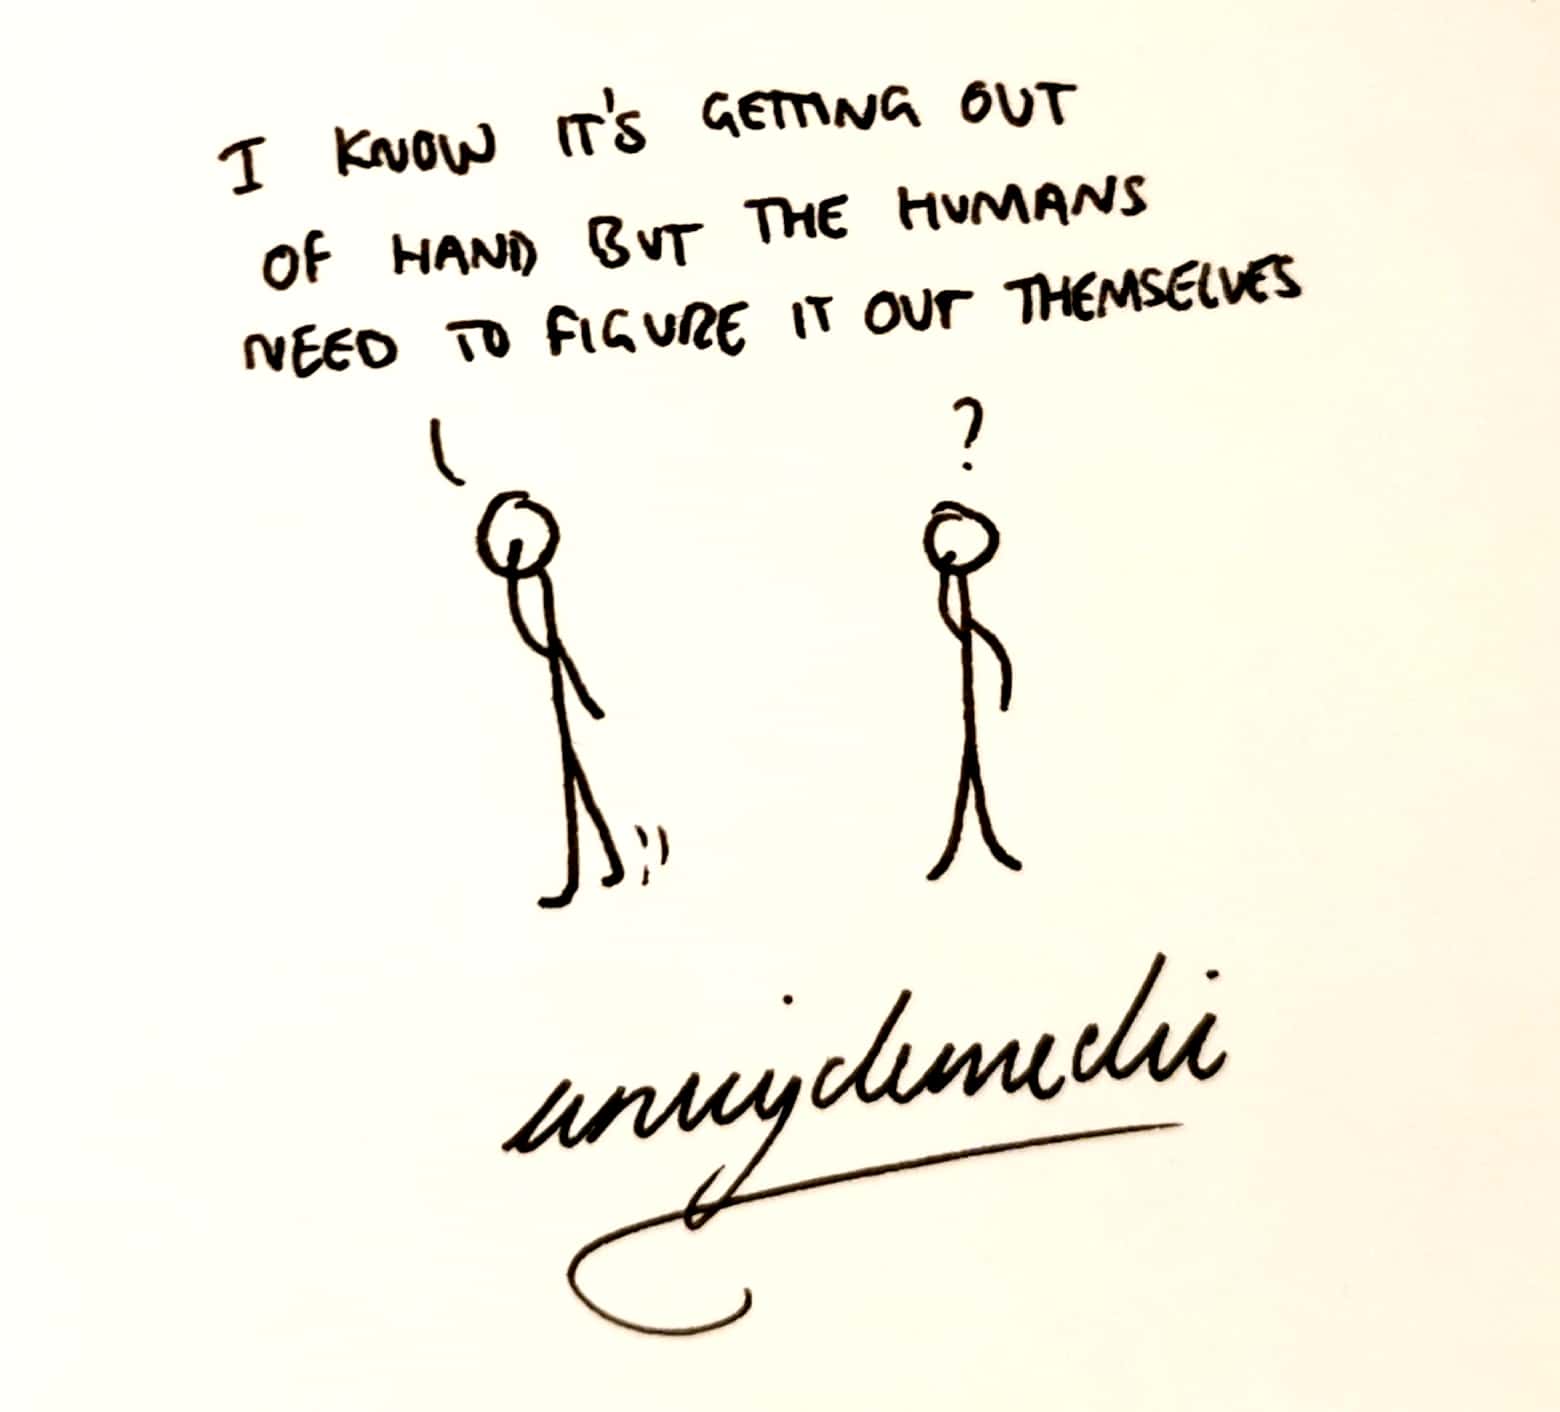 I KNOW IT'S GETTING OUT
OF HAND BUT THE HUMANS
NEED TO FIGURE IT OUT THEMSELVES
?